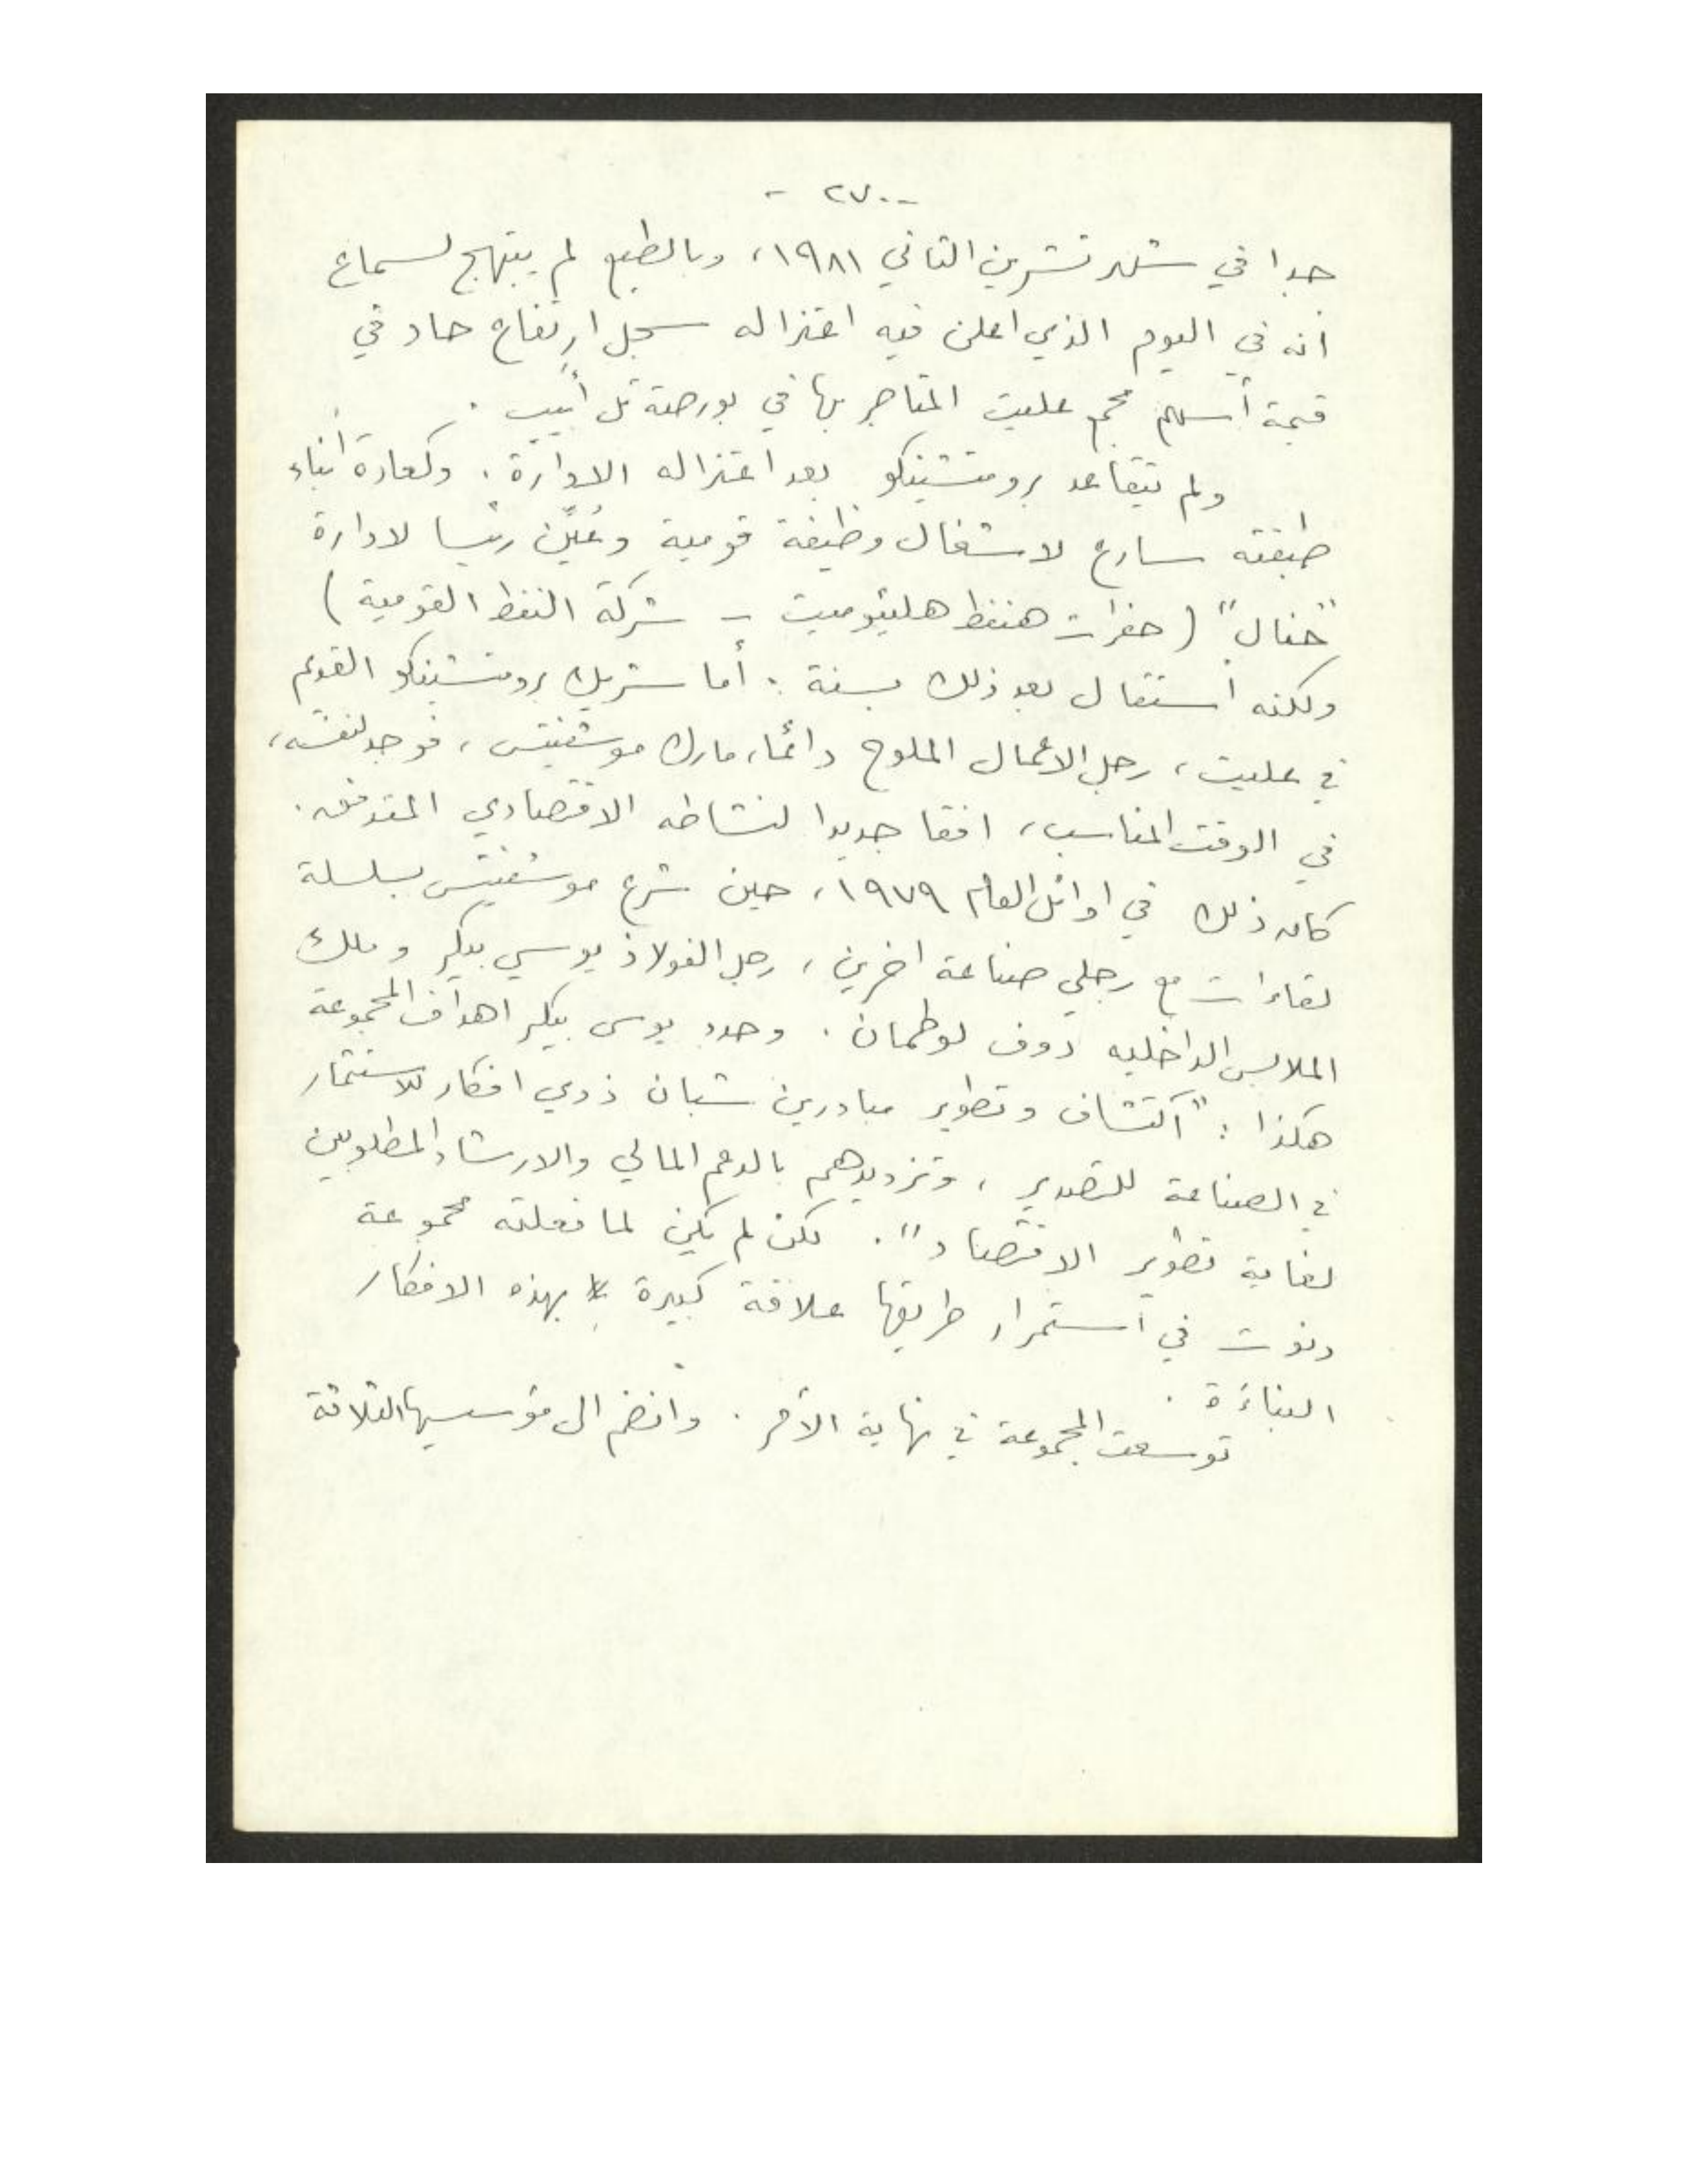 - ٢٧٠ -
جدا في شهر تشرين الثاني ١٩٨١، وبالطبع لم يبتهج لسماع
انه في اليوم الذي اعلن فيه اعتزاله سجل ارتفاع حاد في
قيمة أسهم مجمع علييت المتاجر بها في بورصة تل أبيب .
ولم يتقاعد برومتشينكو بعد اعتزاله الادارة . وكعادة أبناء
طبقته سارع لاشغال وظيفة قومية وعُيّن رئيسا لادارة
"حنال" ( حفرات هنفط هليئوميت - شركة النفط القومية )
ولكنه استقال بعد ذلك بسنة . أما شريك برومتشينكو القديم
في علييت ، رجل الاعمال الملوح دائما، مارك موشفيتس ، فوجد لنفسه،
في الوقت المناسب، افقا جديدا لنشاطه الاقتصادي المتدفق .
كان ذلك في اوائل العام ١٩٧٩، حين شرع موشفيتس بسلسلة
لقاءات مع رجلي صناعة اخرين ، رجل الفولاذ يوسي بيكر وملك
الملابس الداخليه دوف لوطمان . وحدد يوسي بيكر اهداف المجموعة
هكذا : "اكتشاف وتطوير مبادرين شبان ذوي افكار للاستثمار
في الصناعة للتصدير ، وتزويدهم بالدعم المالي والارشاد المطلوبين
لغاية تطوير الاقتصاد" . لكن لم يكن لما فعلته مجموعة
دنوت في استمرار طريقها علاقة كبيرة بهذه الافكار
البناءة .
توسعت المجموعة في نهاية الأمر . وانضم الى مؤسسيها الثلاثة